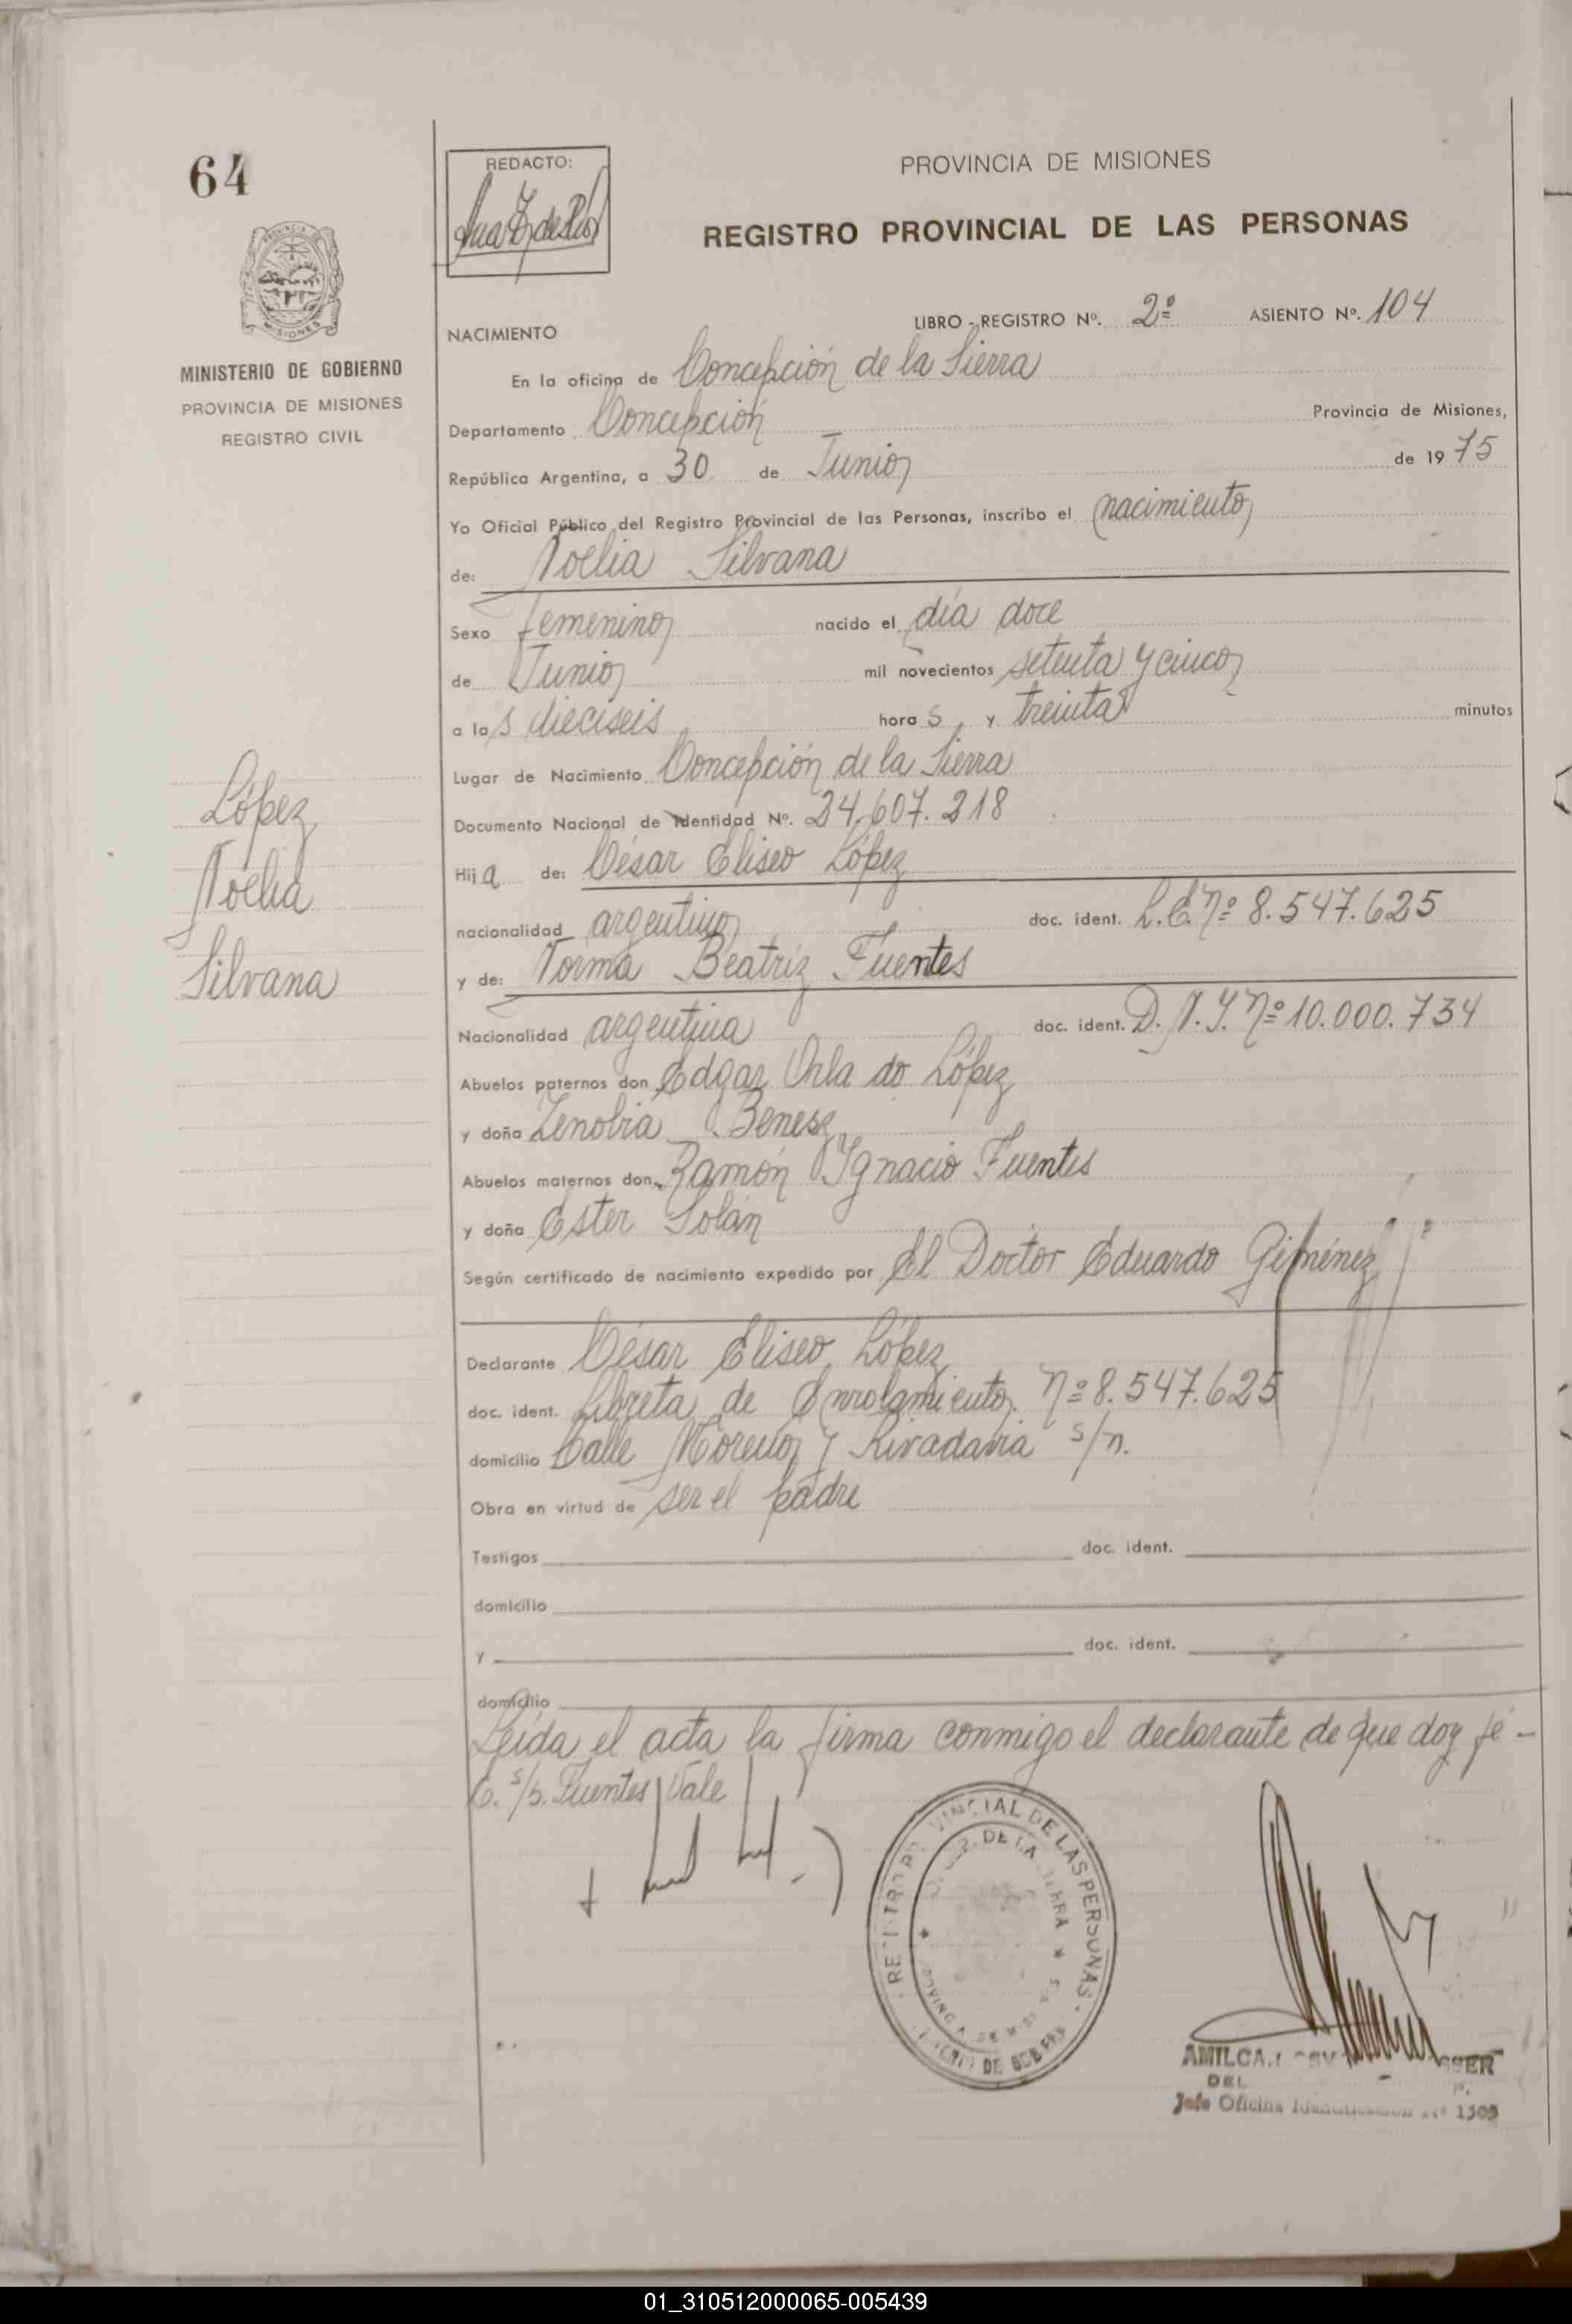 64
REDACTO:
PROVINCIA DE MISIONES
REGISTRO PROVINCIAL DE LAS PERSONAS
MISIONES
MINISTERIO DE GOBIERNO
PROVINCIA DE MISIONES
REGISTRO CIVIL
LIBRO - REGISTRO Nº. 2º ASIENTO Nº. 104
NACIMIENTO
En la oficina de Concepción de la Sierra
Departamento Concepción Provincia de Misiones,
República Argentina, a 30 de Junio de 1975
Yo Oficial Público del Registro Provincial de las Personas, inscribo el nacimiento
de: Noelia Silvana
Sexo femenino nacido el día doce
de Junio mil novecientos setenta y cinco
a las dieciseis horas y treinta minutos
Lugar de Nacimiento Concepción de la Sierra
Documento Nacional de Identidad Nº. 24.607.218
Hija de: César Eliseo López
nacionalidad argentino doc. ident. L.E. Nº 8.547.625
y de: Norma Beatriz Fuentes
Nacionalidad argentina doc. ident. D.N.I. Nº 10.000.734
Abuelos paternos don Edgar Orlado López
y doña Zenobia Benesz
Abuelos maternos don Ramón Ignacio Fuentes
y doña Ester Solán
Según certificado de nacimiento expedido por El Doctor Eduardo Giménez
López
Noelia
Silvana
Declarante César Eliseo López
doc. ident. Libreta de Enrolamiento Nº 8.547.625
domicilio Calle Moreno y Rivadavia s/n.
Obra en virtud de ser el padre
Testigos doc. ident.
domicilio
y doc. ident.
domicilio
Leída el acta la firma conmigo el declarante de que doy fé -
C. s/b. Fuentes Vale
PROVINCIAL DE LAS PERSONAS
DE LA SIERRA
Jefe Oficina Identificación Nº 1309
01_310512000065-005439